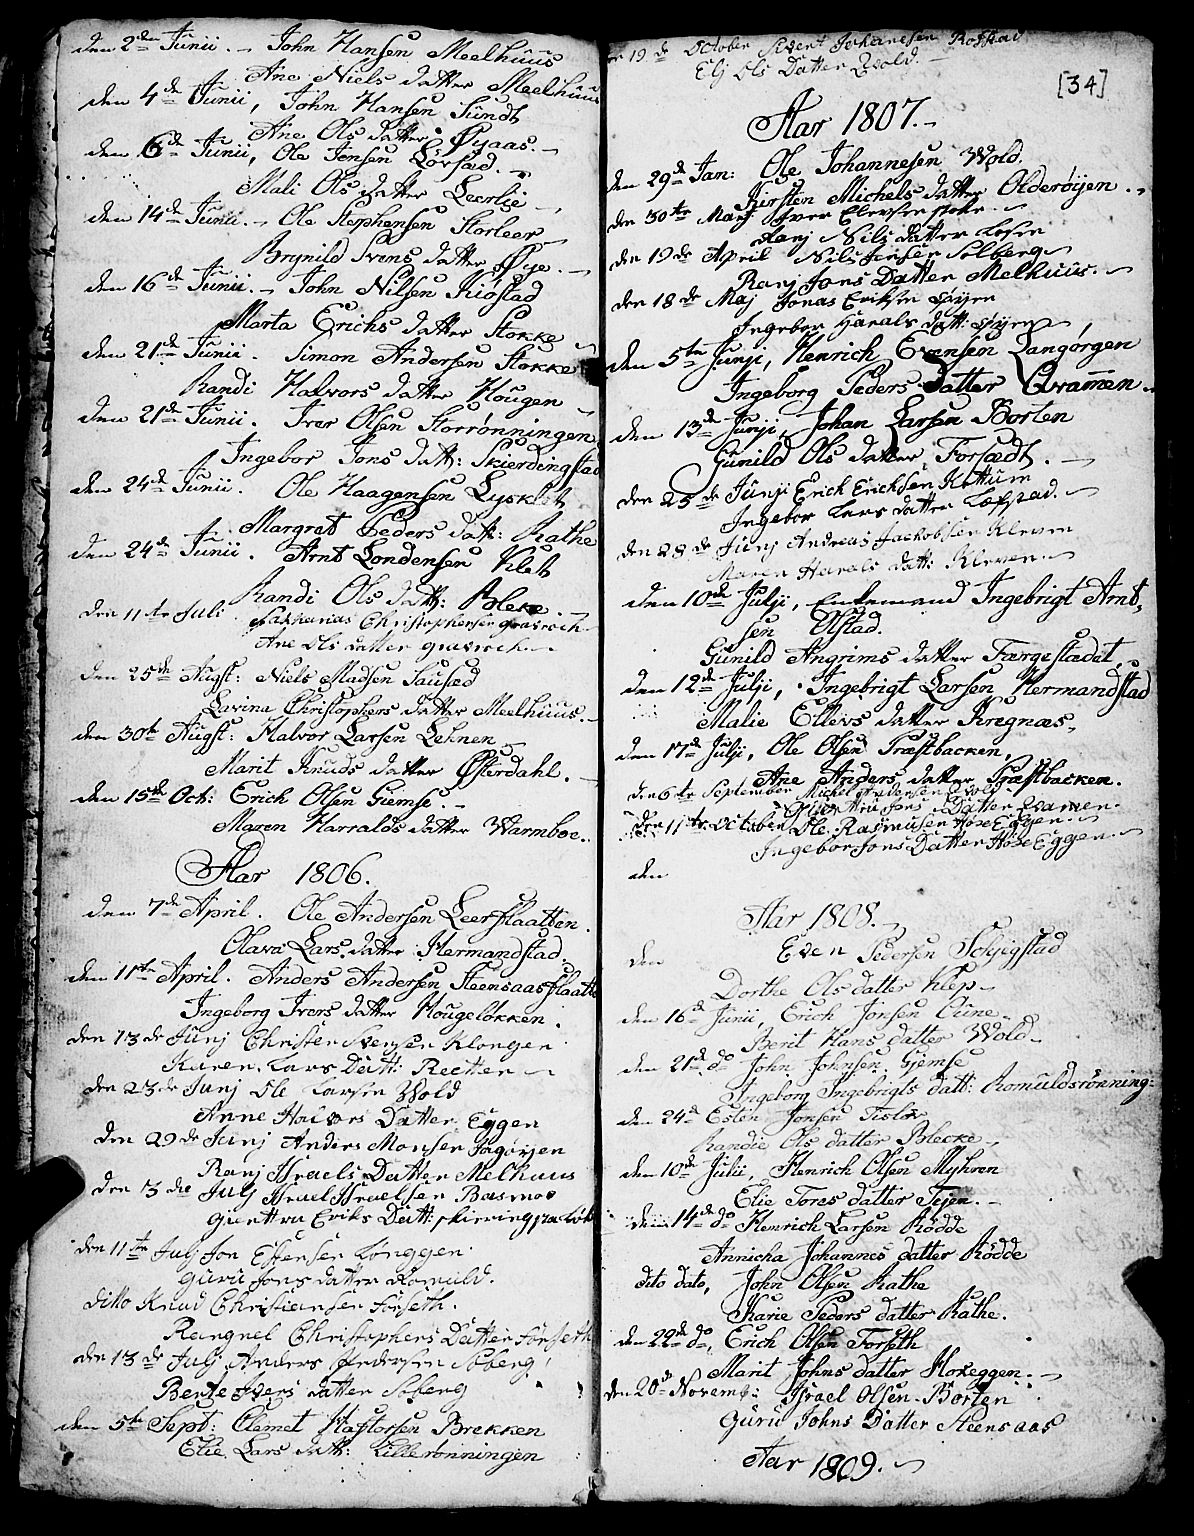 den 2den Junii. - John Hansen Meelhuus
Ane Niels datter Meelhuus
den 4de Junii, John Hansen Sundt
Ane Ols datter Øyaas. -
den 6de Junii, Ole Jensen Lørsæd. -
Mali Ols datter Leerlie -
den 14de Junii. - Ole Stephensen Storleer
Brynild Svens datter Øye. -
den 16de Junii. - John Nilsen Kiøstad
Marta Erichs datter Stokke
den 21de Junii. Simon Andersen Stokke
Randi Halvors datter Hougen -
den 21de Junii. Iver Olsen Storrønningen
Ingebor Jons datt: Skierdingstad
den 24de Junii. Ole Haagensen Lysklet
Margrat Peders datt: Rathe
den 24de Junii. Arnt Londensen Vilet
Randi Ols datt: Bleke. -
den 11te Juli Sakharias Christophersen gravroch -
Ane Ols datter gravroch. -
den 25de Augst: Niels Madsen Sausæd
Lavina Christophers datter Meelhuus. -
den 30te Augst: Halvor Larsen Lehnen
Marit Knuds datter Østerdahl. -
den 15de Oct: Erich Olsen Giemse. -
Maren Harralds datter Warmboe.
Aar 1806.
den 7de April. Ole Andersen Leerslaatten.
Olava Lars datter Hermandstad
den 11te April. Anders Andersen Steensaasslaatte
Ingeborg Ivers datter Hougeløkken.
den 13de Junj Christen Svensen Klongen
Karen Lars Datt: Reetten -
den 23de Junj Ole Larsen Wold
Anne Halvors Datter Eggen
den 29de Junj Anders Monsen Fagøryen
Ranj Israels Datter Melhuus
den 3die Julj Israel Israelsen Basmoe
Guettru Eriks Datt:
den 11te Julj Jon Estensen Lønggen
Guru Jons datter Romuld.
ditto Knud Christiansen Forseth.
Rangnel Christophers Datter Forseth
den 13de Julj Anders Pedersen Søberg
Berte Ivers datter Søberg
den 5te Sept: Clemet Hastorsen Brekken
Elie Lars datt: Lillerønningen
19de October Sivert Johanesen Rofstad
Elj Ols Datter Wold. -
[34]
Aar 1807. -
den 29de Jan: Ole Johannesen Wold.
Kirsten Michels datter Olderøyen. -
den 30te Marj Iver Elevsen stoke -
Ranj Nils datter Losen
den 19de April Nils Jensen Solberg
Ranj Jons Datter Melhuus. -
den 18de Maj Jonas Eriksen Løyen
Ingebor Harals datt: Øyen -
den 5te Junji, Henrich Evensen Langørgen
Ingeborg Peders datter Qvammen -
den 13de Junji, Johan Larsen Borten
Gunild Ols datter Forsædt. -
den 25de Junji Erich Erichsen Kattum
Ingebor Lars datter Løfstad. -
den 28de Junj Andreas Jackobsen Kleven
Maren Harals datt: Kleven. -
den 10de Julji, Enkemand Ingebrigt Arnt-
sen Ølstad.
Gunild Angrims datter Færgestædet,
den 12de Julji, Ingebrigt Larsen Hermandstad
Malie Ellevs datter Kregnæs,
den 17de Julji, Ole Olsen Præstbacken,
Ane Anders datter Præstbacken.
den 6te September Michel Andersen Evold
Jons Datter Qvamen -
den 11te October Ole Rasmusen Høxe Eggen. -
Ingebor Jons Datter Høxe Eggen. -
den
Aar 1808. -
den Even Pedersen Schjegstad
Dorthe Ols datter Klep -
den 16de Junii, Erich Jonsen Cune -
Berit Hans datter Wold -
den 21de do John Johnsen Gjemse
Ingeborg Ingebrigts datt: Romuldsrønning:
den 24de Esten Jonsen Tisløv
Randie Ols datter Blecke -
den 10de Julii, Henrich Olsen Myhren
Elie Tores datter Tejen. -
den 14de do Henrich Larsen Rødde
Annicha Johannes datter Rødde
dito dato, John Olsen Rathe
Karie Peders datter Rathe.
den 22de do, Erich Olsen Forseth
Marit Johns datter Hoxeggen. -
den 20de Novemb: Israel Olsen Borten
Guru Johns Datter Steensaas
Aar 1809. -